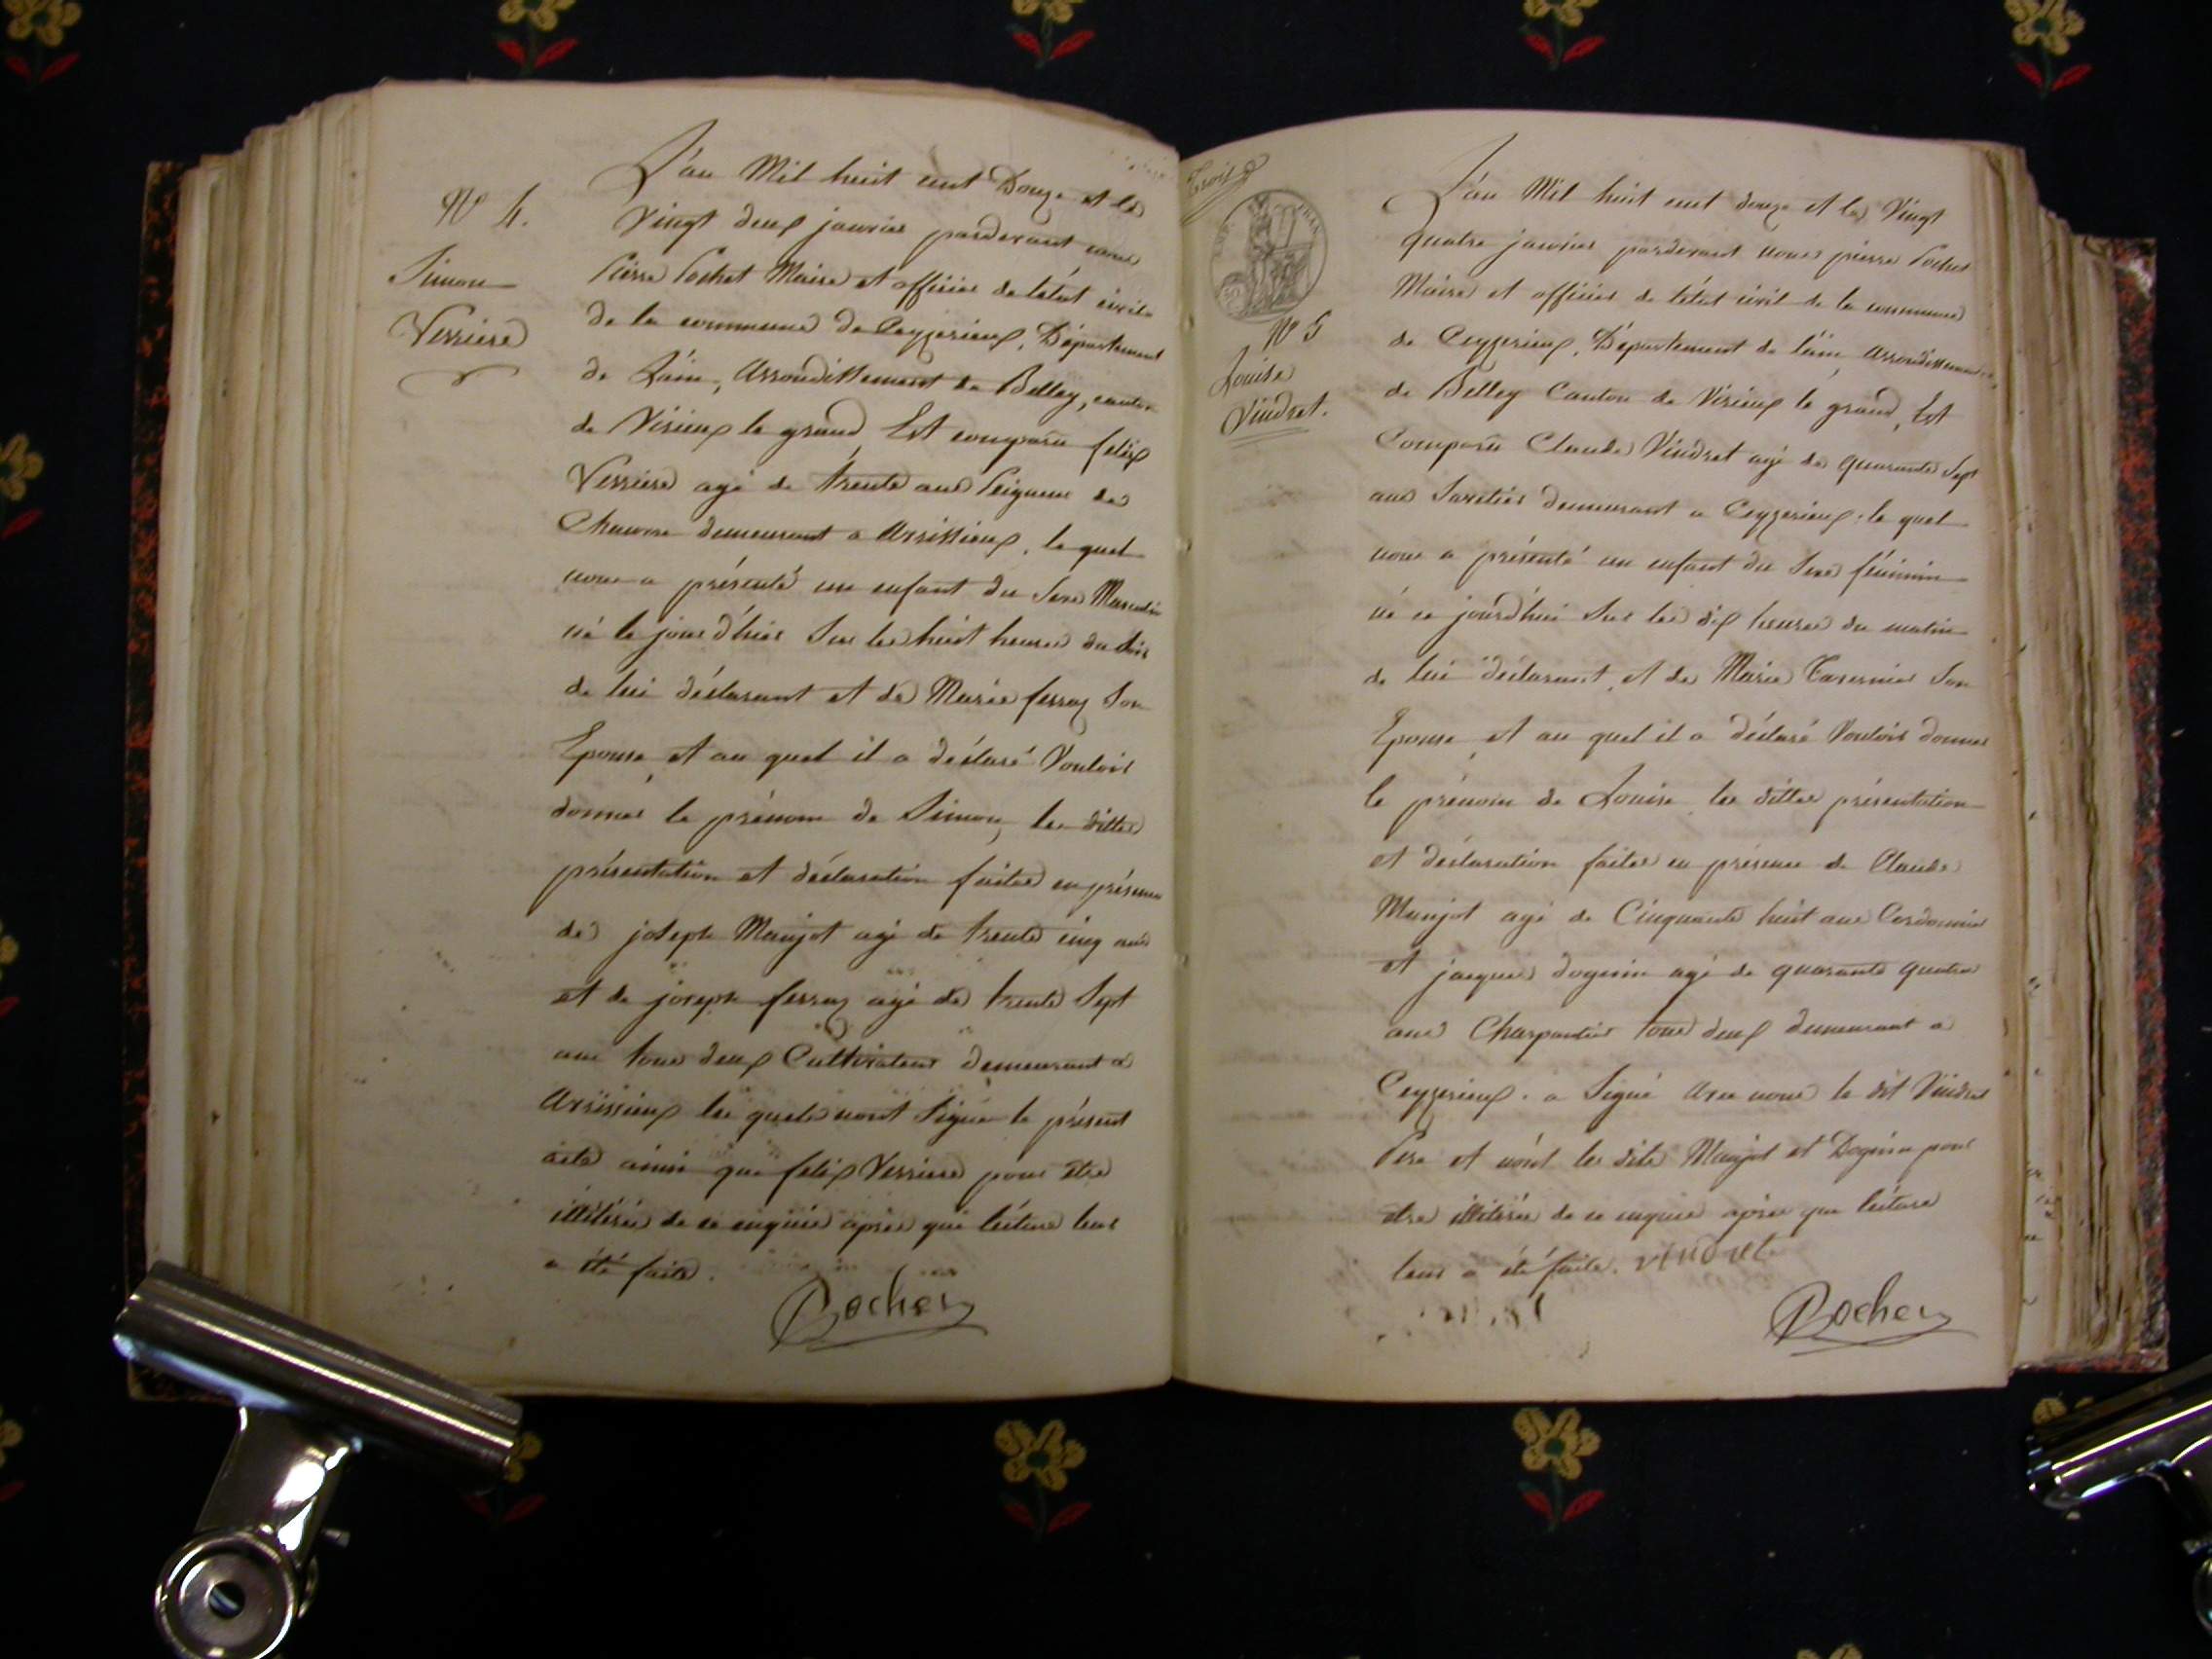 N° 4.
Simon
Verriere
L'an Mil huit cent Douze et le
Vingt deux janvier pardevant nous
Pierre Pochet Maire et officier de l'état civil
de la commune de Ceyzerieux, Département
de L'ain, Arrondissement de Belley, canton
de Virieux le grand, Est comparu felix
Verriere agé de trente ans Peigneur de
Chanvre demeurant a Arsissieux, le quel
nous a présenté un enfant du Sexe Masculin
né le jour d'hier Sur les huit heures du Soir
de lui déclarant et de Marie ferraz Son
Epouse, et au quel il a déclaré Vouloir
donner le prénom de Simon, les dittes
présentation et déclaration faites en présence
de joseph Manjot agé de trente cinq ans
et de joseph ferraz agé de trente Sept
ans tous deux Cultivateurs demeurant a
Arsissieux les quels n'ont Signé le présent
acte ainsi que felix Verriere pour etre
illitérés de ce enquis après que lecture leur
a été faite.
Pochet
Trois
N° 5
Louise
Vindret.
L'an Mil huit cent douze et le Vingt
quatre janvier pardevant nous pierre Pochet
Maire et officier de l'état civil de la commune
de Ceyzerieux, Département de l'ain, Arrondissement
de Belley Canton de Virieux le grand, Est
Comparu Claude Vindret agé de quarante Sept
ans demeurant a Ceyzerieux, le quel
nous a présenté un enfant du Sexe féminin
né ce jourd'hui Sur les dix heures du matin
de lui déclarant, et de Marie Tavernier Son
Epouse, et au quel il a déclaré Vouloir donner
le prénom de Louise les dittes présentation
et déclaration faites en présence de Claude
Manjot agé de Cinquante huit ans Cordonnier
et jacques doguin agé de quarante quatre
ans Charpentier tous deux demeurant a
Ceyzerieux. a Signé avec nous le dit Vindret
Pere et n'ont les dits Manjot et Doguin pour
etre illitérés de ce enquis après que lecture
leur a été faite. vindret
Pochet